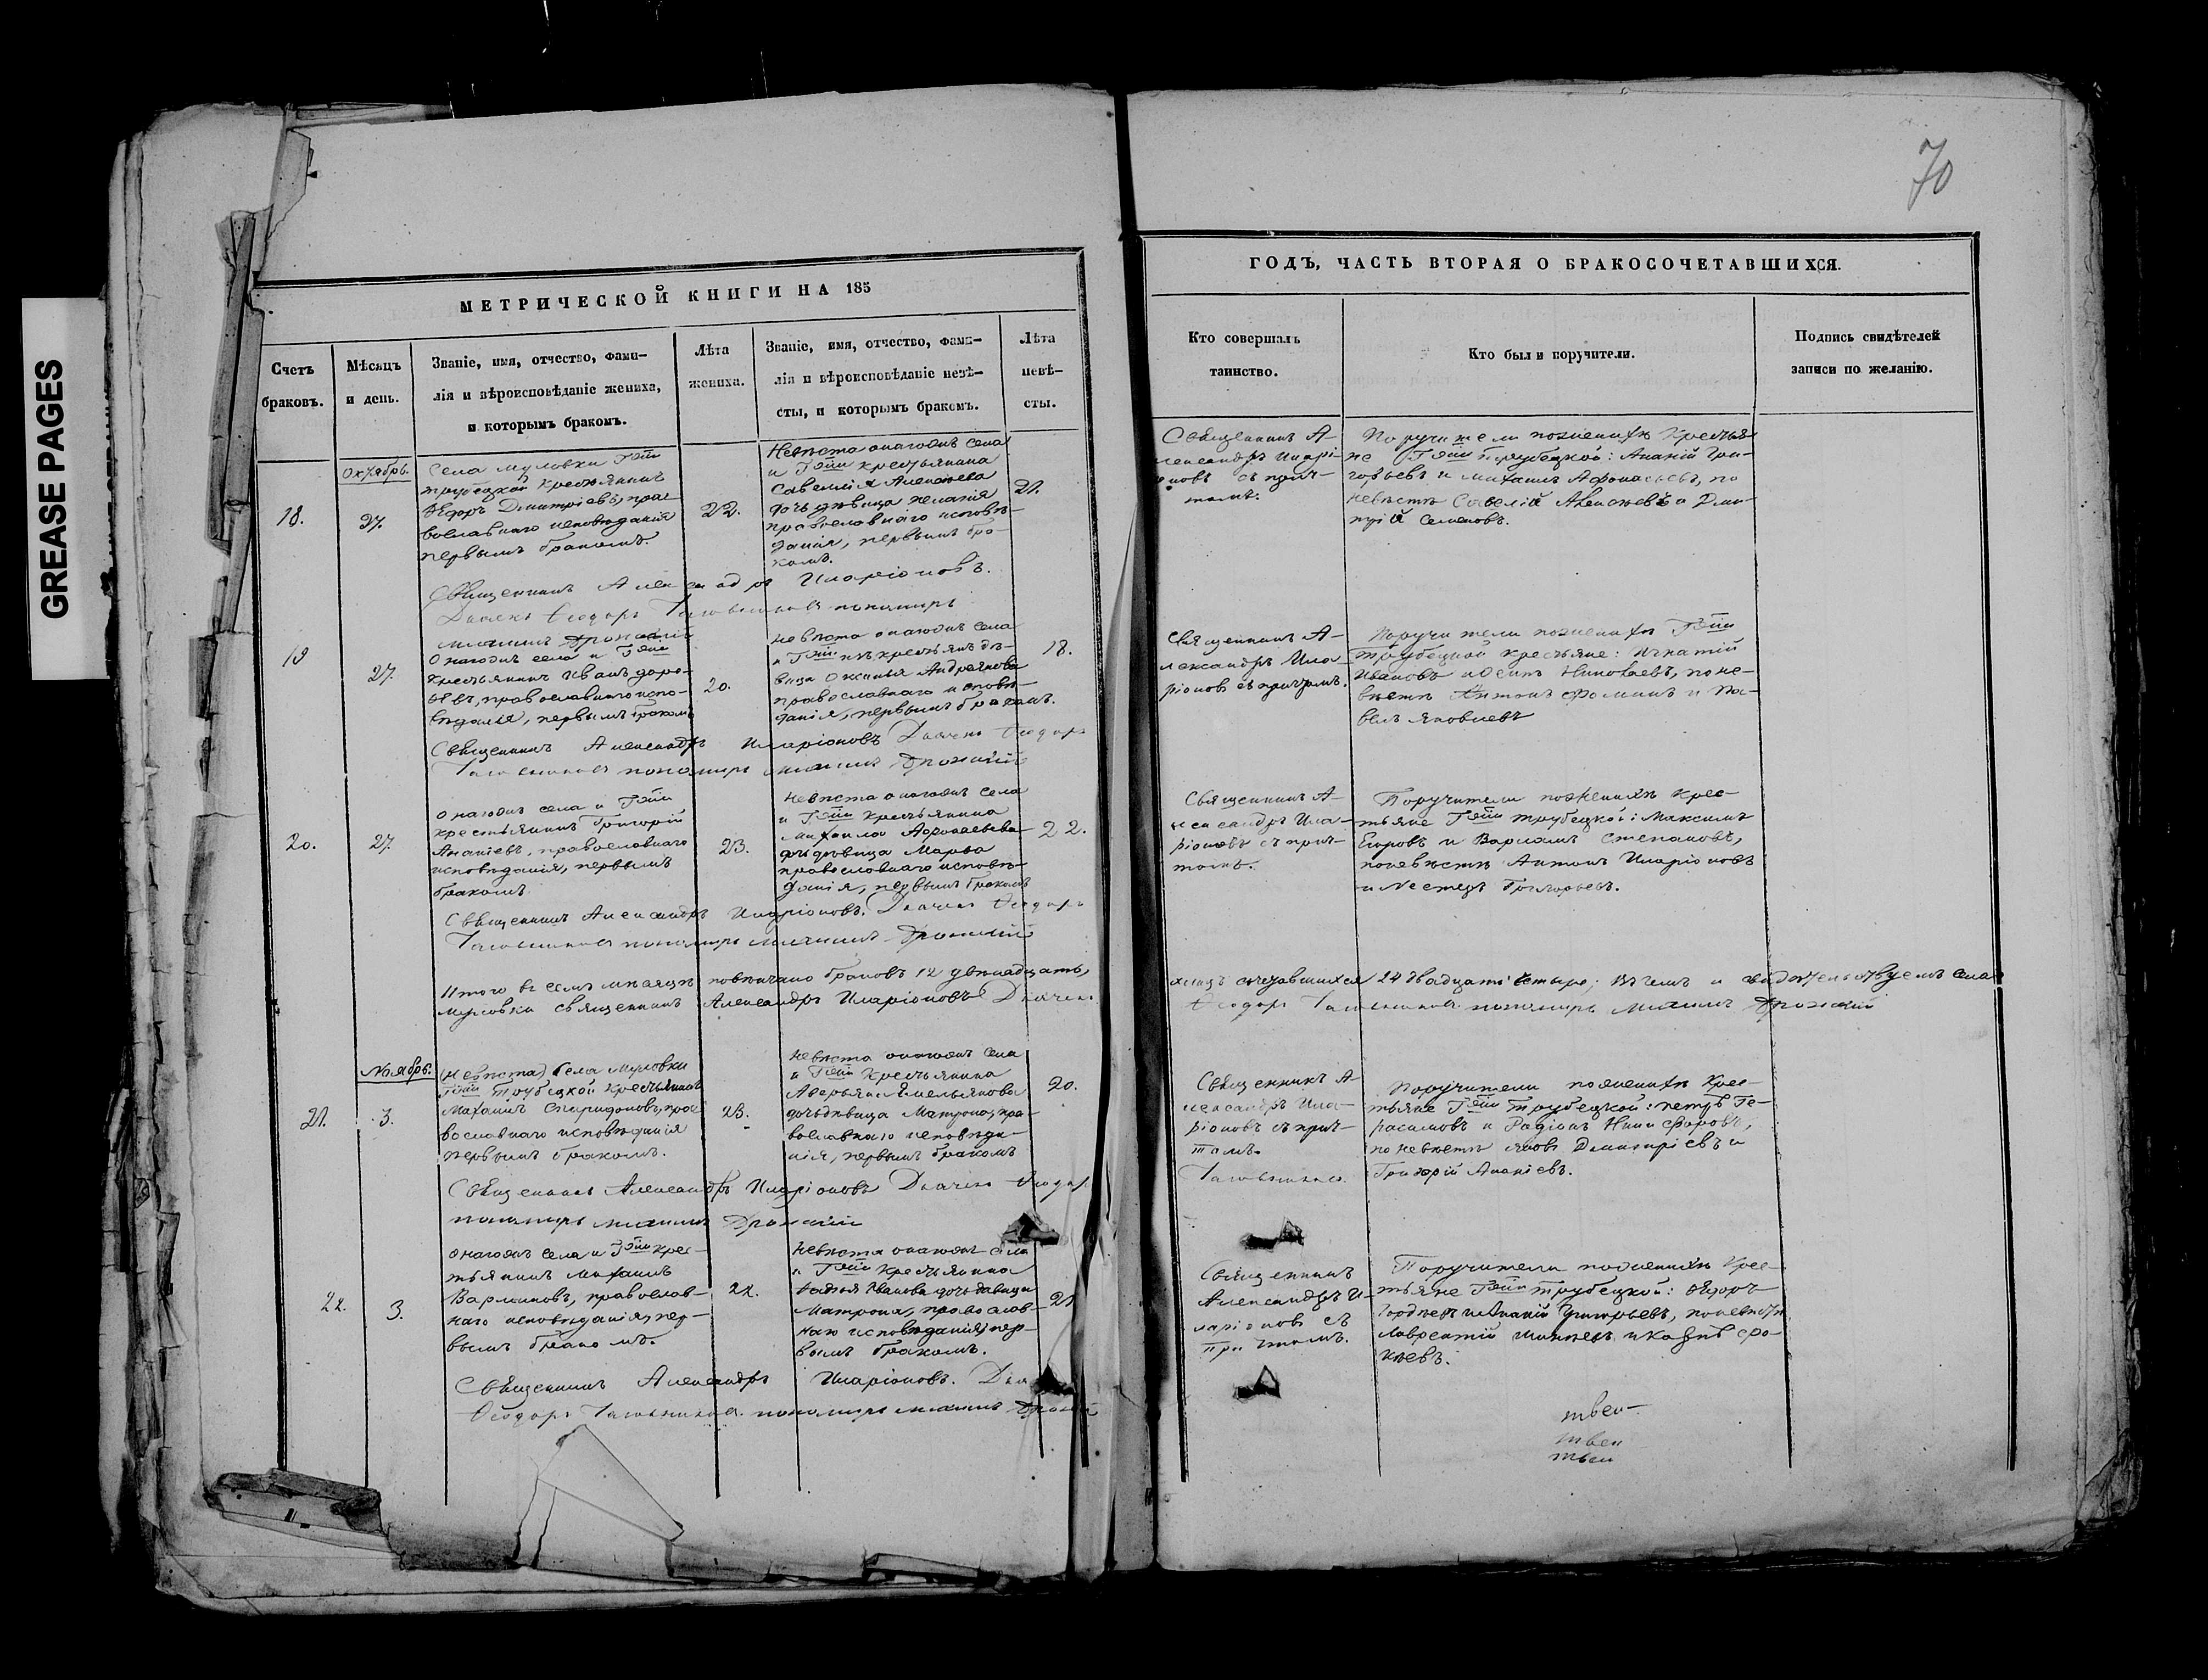 GREASE PAGES
70
МЕТРИЧЕСКОЙ КНИГИ НА 185
ГОДЪ, ЧАСТЬ ВТОРАЯ О БРАКОСОЧЕТАВШИХСЯ.
Счетъ
браковъ.
Мѣсяцъ
и день.
Званіе, имя, отчество, фами-
лія и вѣроисповѣданіе жениха,
и которымъ бракомъ.
Лѣта
жениха.
Званіе, имя, отчество, фами-
лія и вѣроисповѣданіе невѣ-
сты, и которымъ бракомъ.
Лѣта
невѣ-
сты.
Кто совершалъ
таинство.
Кто были поручители.
Подпись свидѣтелей
записи по желанію.
Октябрь.
18.
27.
Села Муловки Гжи
Трубецкой крестьянинъ
Ѳедоръ Димитріевъ, пра-
вославнаго исповѣданія
первымъ бракомъ.
22.
Невѣста онагожъ села
и Гжи крестьянина
Савелія Алексѣева
дочь дѣвица Пелагія
православнаго исповѣ-
данія, первымъ бра-
комъ.
21.
Священникъ А-
лександръ Иларі-
оновъ съ прич-
томъ.
Поручители по женихѣ крестья-
не Гжи Трубецкой: Ананій Гри-
горьевъ и Михаилъ Афонасьевъ, по
невѣстѣ Савелій Алексѣевъ и Дми-
трій Семеновъ.
Священникъ Александръ Иларіоновъ.
Дьячекъ Ѳеодоръ пономарь
19
27.
Онагожъ села и Гжи
крестьянинъ Иванъ
православнаго испо-
вѣданія, первымъ бракомъ
20.
Невѣста онагожъ села
и Гжи изъ крестьянъ дѣ-
вица Аксинья Андреянова
православнаго исповѣ-
данія, первымъ бракомъ.
18.
Священникъ А-
лександръ Ила-
ріоновъ съ причтомъ.
Поручители по женихѣ Гжи
Трубецкой крестьяне: Игнатій
Ивановъ и Осипъ Николаевъ, по не-
вѣстѣ Антонъ Фоминъ и Па-
велъ Яковлевъ
Священникъ Александръ Иларіоновъ Дьячекъ Ѳеодоръ
пономарь
20.
27.
Онагожъ села и Гжи
крестьянинъ Григорій
Ананіевъ, православнаго
исповѣданія, первымъ
бракомъ.
23.
Невѣста онагожъ села
и Гжи крестьянина
Михаила Афонасьева
дочь дѣвица Марья
православнаго исповѣ-
данія, первымъ бракомъ
22.
Священникъ А-
лександръ Ила-
ріоновъ съ прич-
томъ.
Поручители по женихѣ крес-
тьяне Гжи Трубецкой: Максимъ
Егоровъ и Варламъ Степановъ,
по невѣстѣ Антонъ Иларіоновъ
и Григорьевъ.
Священникъ Александръ Иларіоновъ. Дьячекъ Ѳеодоръ
пономарь
Итого въ семъ мѣсяцѣ повѣнчано браковъ 12 двѣнадцать, сочетавшихся 24 двадцать четыре; въ чемъ и свидѣтельствуемъ села
Муловки священникъ Александръ Иларіоновъ Дьячекъ Ѳеодоръ пономарь
Ноябрь.
21.
3.
(невѣста) Села Муловки
Гжи Трубецкой крестьянинъ
Михаилъ Спиридоновъ, пра-
вославнаго исповѣданія
первымъ бракомъ.
23.
Невѣста онагожъ села
и Гжи крестьянина
Аверьяна Емельянова
дочь дѣвица Матрона, пра-
вославнаго исповѣда-
нія, первымъ бракомъ
20.
Священникъ А-
лександръ Ила-
ріоновъ съ прич-
томъ.
Поручители по женихѣ крес-
тьяне Гжи Трубецкой: Петръ Ге-
расимовъ и Радіонъ Никифоровъ,
по невѣстѣ Яковъ Димитріевъ и
Григорій Ананіевъ.
Священникъ Александръ Иларіоновъ Дьячекъ Ѳеодоръ
пономарь
22.
3.
Онагожъ села и Гжи крес-
тьянинъ Михаилъ
Варламовъ, православ-
наго исповѣданія, пер-
вымъ бракомъ.
22.
Невѣста онагожъ села
и Гжи крестьянина
Иванова дочь дѣвица
Матрона, православ-
наго исповѣданія, пер-
вымъ бракомъ.
21
Священникъ
Александръ И-
ларіоновъ съ
причтомъ.
Поручители по женихѣ крес-
тьяне Гжи Трубецкой: Ѳедоръ
Гордѣевъ и Ананій Григорьевъ, по невѣстѣ
Лаврентій
Священникъ Александръ Иларіоновъ.
Ѳеодоръ пономарь